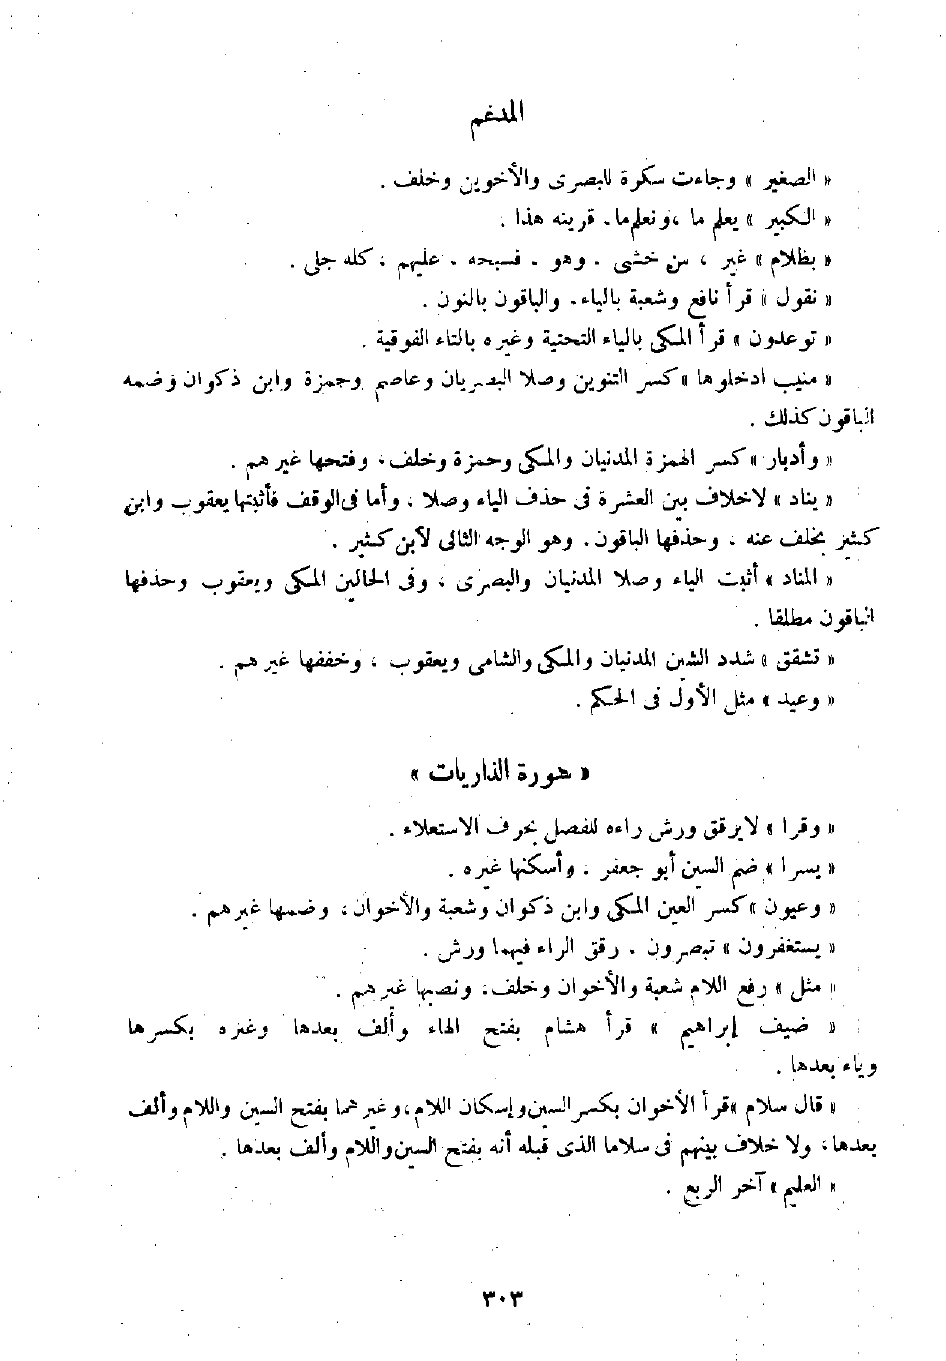 المدغم
« الصغير » وجاءت سكرة للبصرى والأخوين وخلف .
« الكبير » يعلم ما ، ونعلم ما . قرينه هذا .
« بظلام » غير ، من خشى . وهو . فسبحه . عليهم ، كله جلى .
« نقول » قرأ نافع وشعبة بالياء . والباقون بالنون .
« توعدون » قرأ المكى بالياء التحتية وغيره بالتاء الفوقية .
« منيب ادخلوها » كسر التنوين وصلا البصريان وعاصم وحمزة وابن ذكوان وضمه
الباقون كذلك .
« وأدبار » كسر الهمزة المدنيان والمكى وحمزة وخلف ، وفتحها غيرهم .
« يناد » لاخلاف بين العشرة فى حذف الياء وصلا ، وأما فى الوقف فأثبتها يعقوب وابن
كثير بخلف عنه ، وحذفها الباقون . وهو الوجه الثانى لابن كثير .
« المناد » أثبت الياء وصلا المدنيان والبصرى ، وفى الحالين المكى ويعقوب وحذفها
الباقون مطلقا .
« تشقق » شدد الشين المدنيان والمكى والشامى ويعقوب ، وخففها غيرهم .
« وعيد » مثل الأول فى الحكم .
« سورة الذاريات »
« وقرا » لايرقق ورش راءه للفصل بحرف الاستعلاء .
« يسرا » ضم السين أبو جعفر ، وأسكنها غيره .
« وعيون » كسر العين المكى وابن ذكوان وشعبة والأخوان ، وضمها غيرهم .
« يستغفرون » تبصرون . رقق الراء فيهما ورش .
« مثل » رفع اللام شعبة والأخوان وخلف ، ونصبها غيرهم .
« ضيف إبراهيم » قرأ هشام بفتح الهاء وألف بعدها وغيره بكسرها
وياء بعدها .
« قال سلام » قرأ الأخوان بكسر السين وإسكان اللام ، وغيرهما بفتح السين واللام وألف
بعدها ، ولا خلاف بينهم فى سلاما الذى قبله أنه بفتح السين واللام وألف بعدها .
« العليم » آخر الربع .
٣٠٣